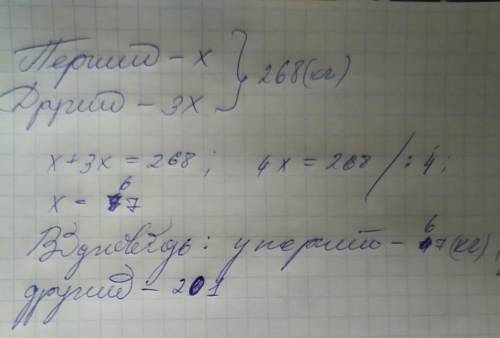 Перший - x } 268 (кг)
Другий - 3x
x+3x = 268; 4x = 268 / :4;
x = 67
Відповідь: у перший - 67 (кг),
другий - 201